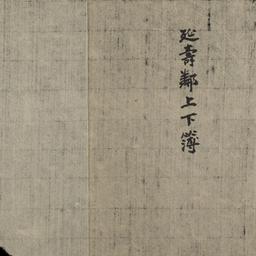 延壽鄰上下簿